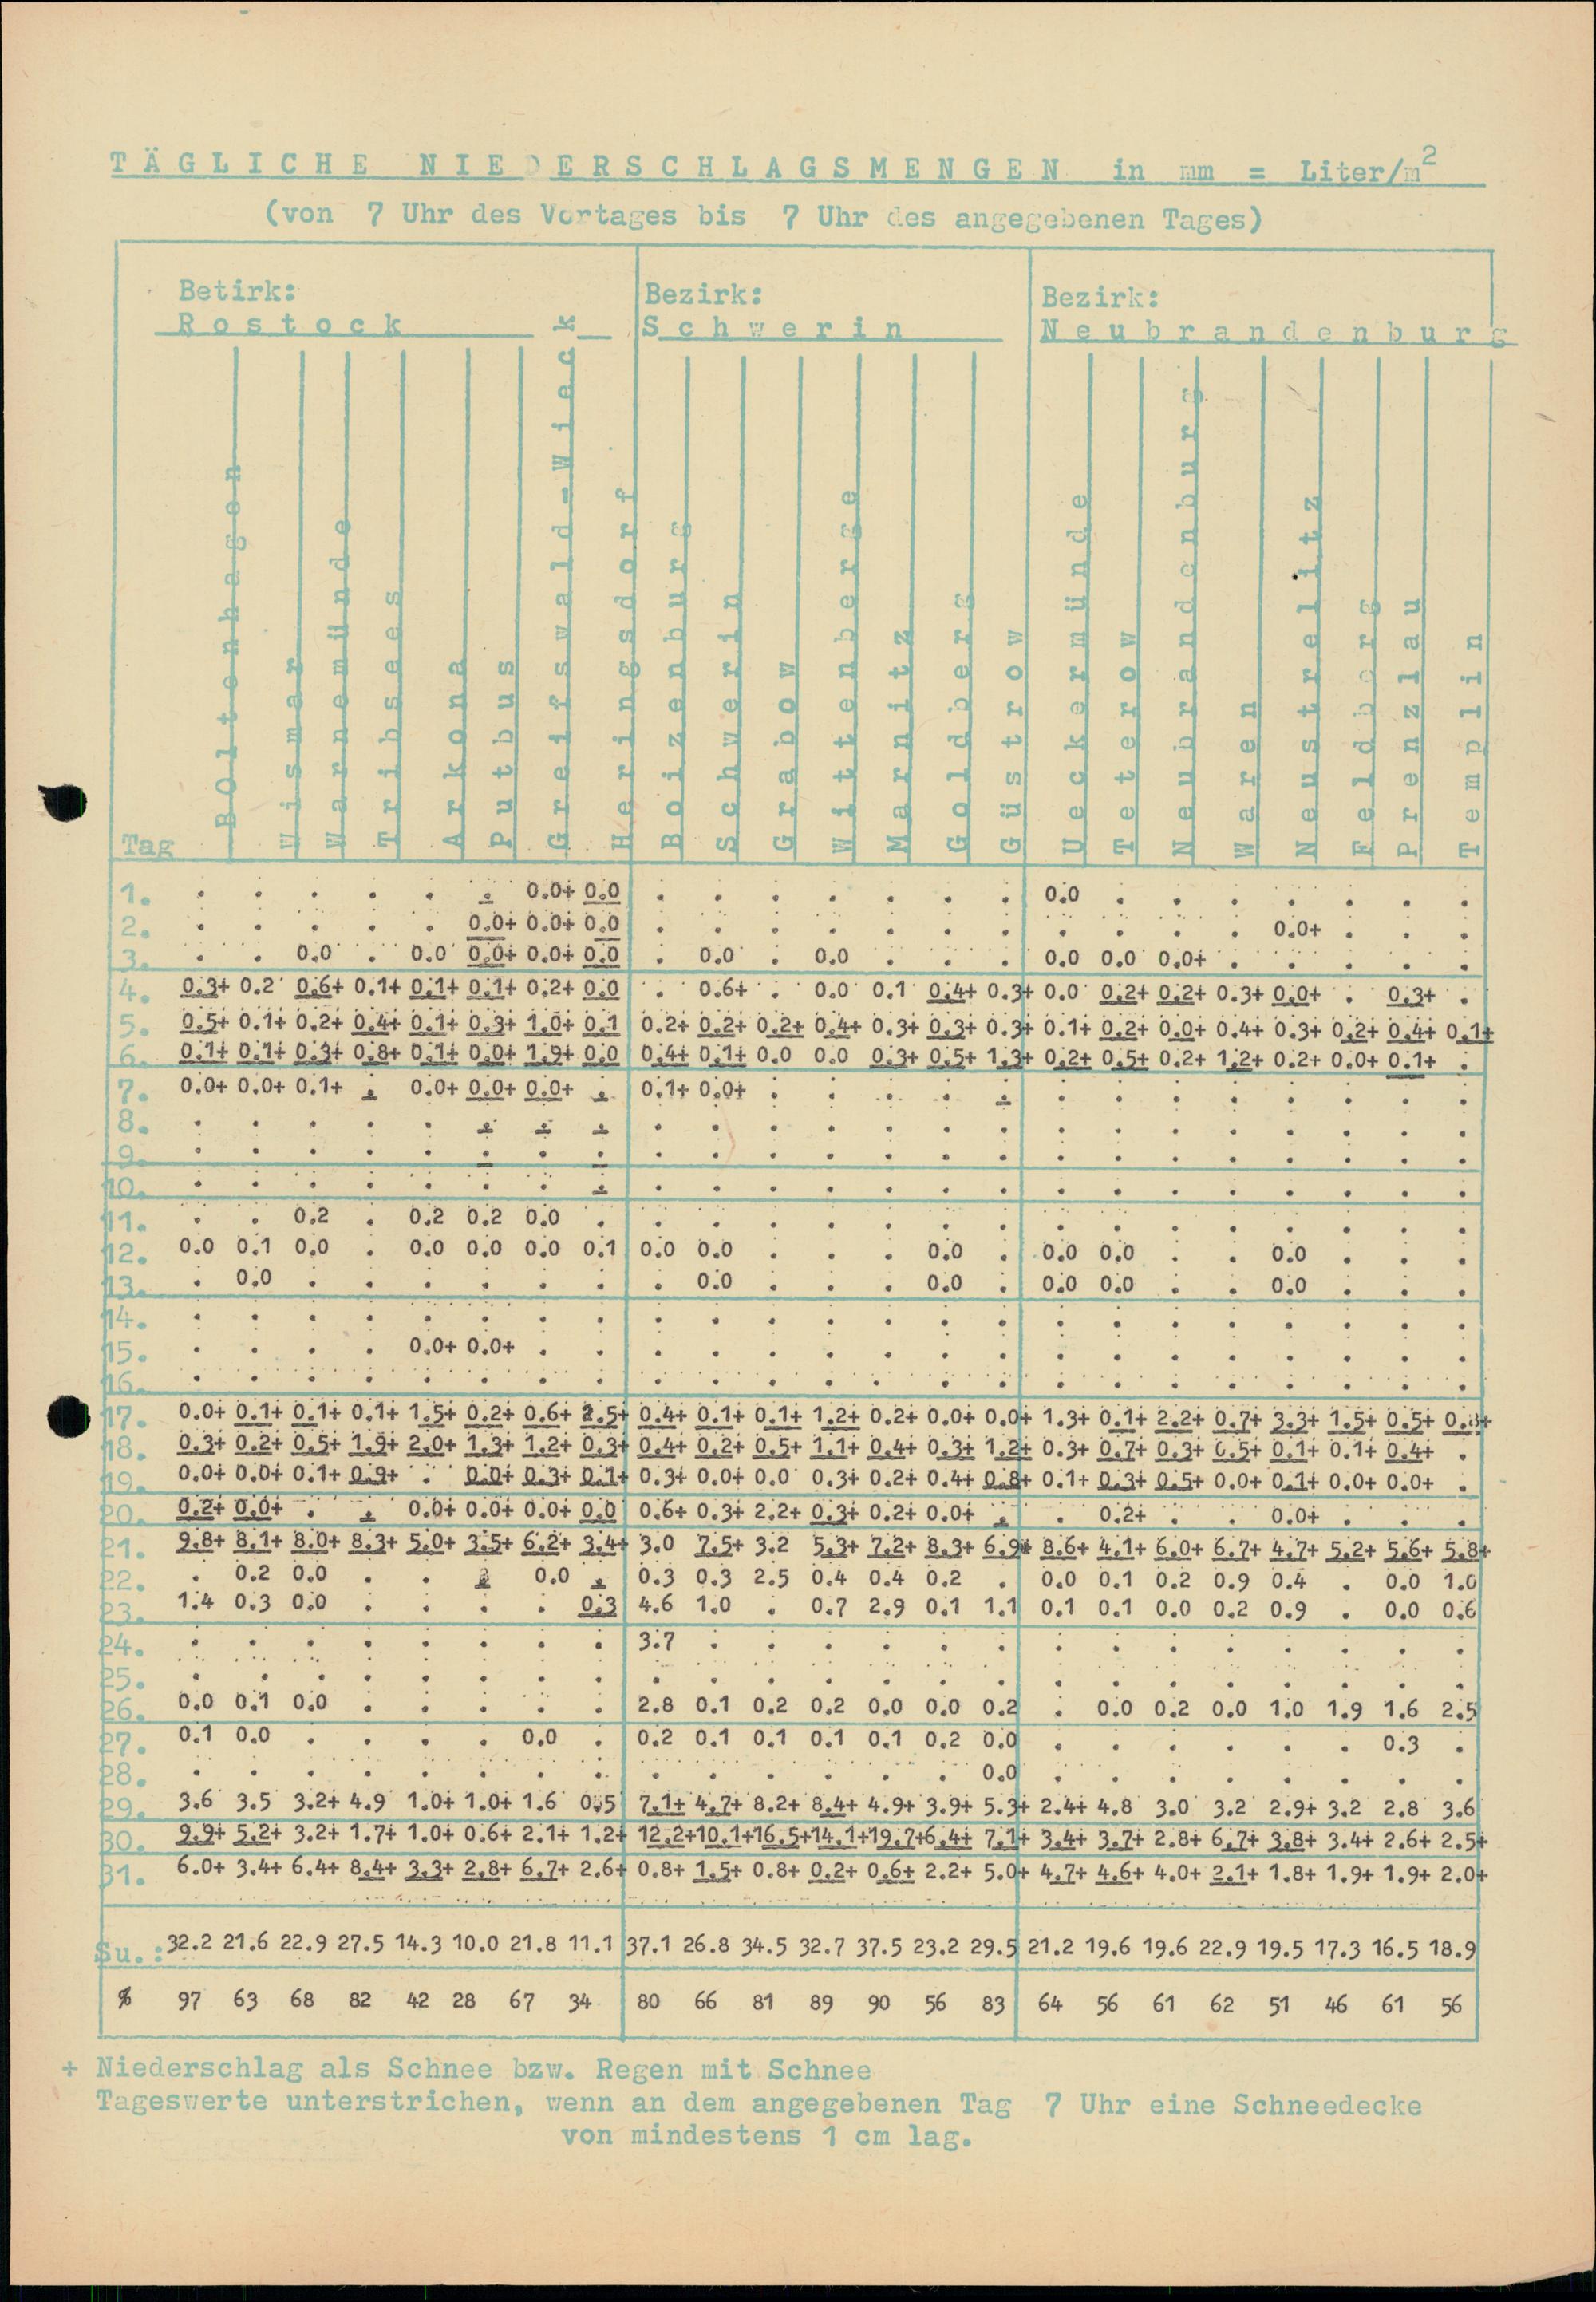 TÄGLICHE NIEDERSCHLAGSMENGEN in mm = Liter/m²
(von 7 Uhr des Vortages bis 7 Uhr des angegebenen Tages)
Betirk: Bezirk: Bezirk:
Rostock Schwerin Neubrandenburg
Tag BOltenhagen Wismar Warnemünde Tribsees Arkona Putbus Greifswald-Wieck Heringsdorf Boizenburg Schwerin Grabow Wittenberge Marnitz Goldberg Güstrow Ueckermünde Teterow Neubrandenburg Waren Neustrelitz Feldberg Prenzlau Templin
1. . . . . . . 0.0+ 0.0 . . . . . . . 0.0 . . . . . . .
2. . . . . . 0.0+ 0.0+ 0.0 . . . . . . . . . . . 0.0+ . . .
3. . . 0.0 . 0.0 0.0+ 0.0+ 0.0 . 0.0 . 0.0 . . . 0.0 0.0 0.0+ . . . . .
4. 0.3+ 0.2 0.6+ 0.1+ 0.1+ 0.1+ 0.2+ 0.0 . 0.6+ . 0.0 0.1 0.4+ 0.3+ 0.0 0.2+ 0.2+ 0.3+ 0.0+ . 0.3+ .
5. 0.5+ 0.1+ 0.2+ 0.4+ 0.1+ 0.3+ 1.0+ 0.1 0.2+ 0.2+ 0.2+ 0.4+ 0.3+ 0.3+ 0.3+ 0.1+ 0.2+ 0.0+ 0.4+ 0.3+ 0.2+ 0.4+ 0.1+
6. 0.1+ 0.1+ 0.3+ 0.8+ 0.1+ 0.0+ 1.9+ 0.0 0.4+ 0.1+ 0.0 0.0 0.3+ 0.5+ 1.3+ 0.2+ 0.5+ 0.2+ 1.2+ 0.2+ 0.0+ 0.1+ .
7. 0.0+ 0.0+ 0.1+ . 0.0+ 0.0+ 0.0+ . 0.1+ 0.0+ . . . . . . . . . . . . .
8. . . . . . . . . . . . . . . . . . . . . . . .
9. . . . . . . . . . . . . . . . . . . . . . . .
10. . . . . . . . . . . . . . . . . . . . . . . .
11. . . 0.2 . 0.2 0.2 0.0 . . . . . . . . . . . . . . . .
12. 0.0 0.1 0.0 . 0.0 0.0 0.0 0.1 0.0 0.0 . . . 0.0 . 0.0 0.0 . . 0.0 . . .
13. . 0.0 . . . . . . . 0.0 . . . 0.0 . 0.0 0.0 . . 0.0 . . .
14. . . . . . . . . . . . . . . . . . . . . . . .
15. . . . . 0.0+ 0.0+ . . . . . . . . . . . . . . . . .
16. . . . . . . . . . . . . . . . . . . . . . . .
17. 0.0+ 0.1+ 0.1+ 0.1+ 1.5+ 0.2+ 0.6+ 2.5+ 0.4+ 0.1+ 0.1+ 1.2+ 0.2+ 0.0+ 0.0+ 1.3+ 0.1+ 2.2+ 0.7+ 3.3+ 1.5+ 0.5+ 0.8+
18. 0.3+ 0.2+ 0.5+ 1.9+ 2.0+ 1.3+ 1.2+ 0.3+ 0.4+ 0.2+ 0.5+ 1.1+ 0.4+ 0.3+ 1.2+ 0.3+ 0.7+ 0.3+ 0.5+ 0.1+ 0.1+ 0.4+ .
19. 0.0+ 0.0+ 0.1+ 0.9+ . 0.0+ 0.3+ 0.1+ 0.3+ 0.0+ 0.0 0.3+ 0.2+ 0.4+ 0.8+ 0.1+ 0.3+ 0.5+ 0.0+ 0.1+ 0.0+ 0.0+ .
20. 0.2+ 0.0+ . . 0.0+ 0.0+ 0.0+ 0.0 0.6+ 0.3+ 2.2+ 0.3+ 0.2+ 0.0+ . . 0.2+ . . 0.0+ . . .
21. 9.8+ 8.1+ 8.0+ 8.3+ 5.0+ 3.5+ 6.2+ 3.4+ 3.0 7.5+ 3.2 5.3+ 7.2+ 8.3+ 6.9+ 8.6+ 4.1+ 6.0+ 6.7+ 4.7+ 5.2+ 5.6+ 5.8+
22. . 0.2 0.0 . . . 0.0 . 0.3 0.3 2.5 0.4 0.4 0.2 . 0.0 0.1 0.2 0.9 0.4 . 0.0 1.0
23. 1.4 0.3 0.0 . . . . 0.3 4.6 1.0 . 0.7 2.9 0.1 1.1 0.1 0.1 0.0 0.2 0.9 . 0.0 0.6
24. . . . . . . . . 3.7 . . . . . . . . . . . . . .
25. . . . . . . . . . . . . . . . . . . . . . . .
26. 0.0 0.1 0.0 . . . . . 2.8 0.1 0.2 0.2 0.0 0.0 0.2 . 0.0 0.2 0.0 1.0 1.9 1.6 2.5
27. 0.1 0.0 . . . . 0.0 . 0.2 0.1 0.1 0.1 0.1 0.2 0.0 . . . . . . 0.3 .
28. . . . . . . . . . . . . . . 0.0 . . . . . . . .
29. 3.6 3.5 3.2+ 4.9 1.0+ 1.0+ 1.6 0.5 7.1+ 4.7+ 8.2+ 8.4+ 4.9+ 3.9+ 5.3+ 2.4+ 4.8 3.0 3.2 2.9+ 3.2 2.8 3.6
30. 9.9+ 5.2+ 3.2+ 1.7+ 1.0+ 0.6+ 2.1+ 1.2+ 12.2+10.1+16.5+14.1+19.7+6.4+ 7.1+ 3.4+ 3.7+ 2.8+ 6.7+ 3.8+ 3.4+ 2.6+ 2.5+
31. 6.0+ 3.4+ 6.4+ 8.4+ 3.3+ 2.8+ 6.7+ 2.6+ 0.8+ 1.5+ 0.8+ 0.2+ 0.6+ 2.2+ 5.0+ 4.7+ 4.6+ 4.0+ 2.1+ 1.8+ 1.9+ 1.9+ 2.0+
Su.: 32.2 21.6 22.9 27.5 14.3 10.0 21.8 11.1 37.1 26.8 34.5 32.7 37.5 23.2 29.5 21.2 19.6 19.6 22.9 19.5 17.3 16.5 18.9
% 97 63 68 82 42 28 67 34 80 66 81 89 90 56 83 64 56 61 62 51 46 61 56
+ Niederschlag als Schnee bzw. Regen mit Schnee
Tageswerte unterstrichen, wenn an dem angegebenen Tag 7 Uhr eine Schneedecke
von mindestens 1 cm lag.